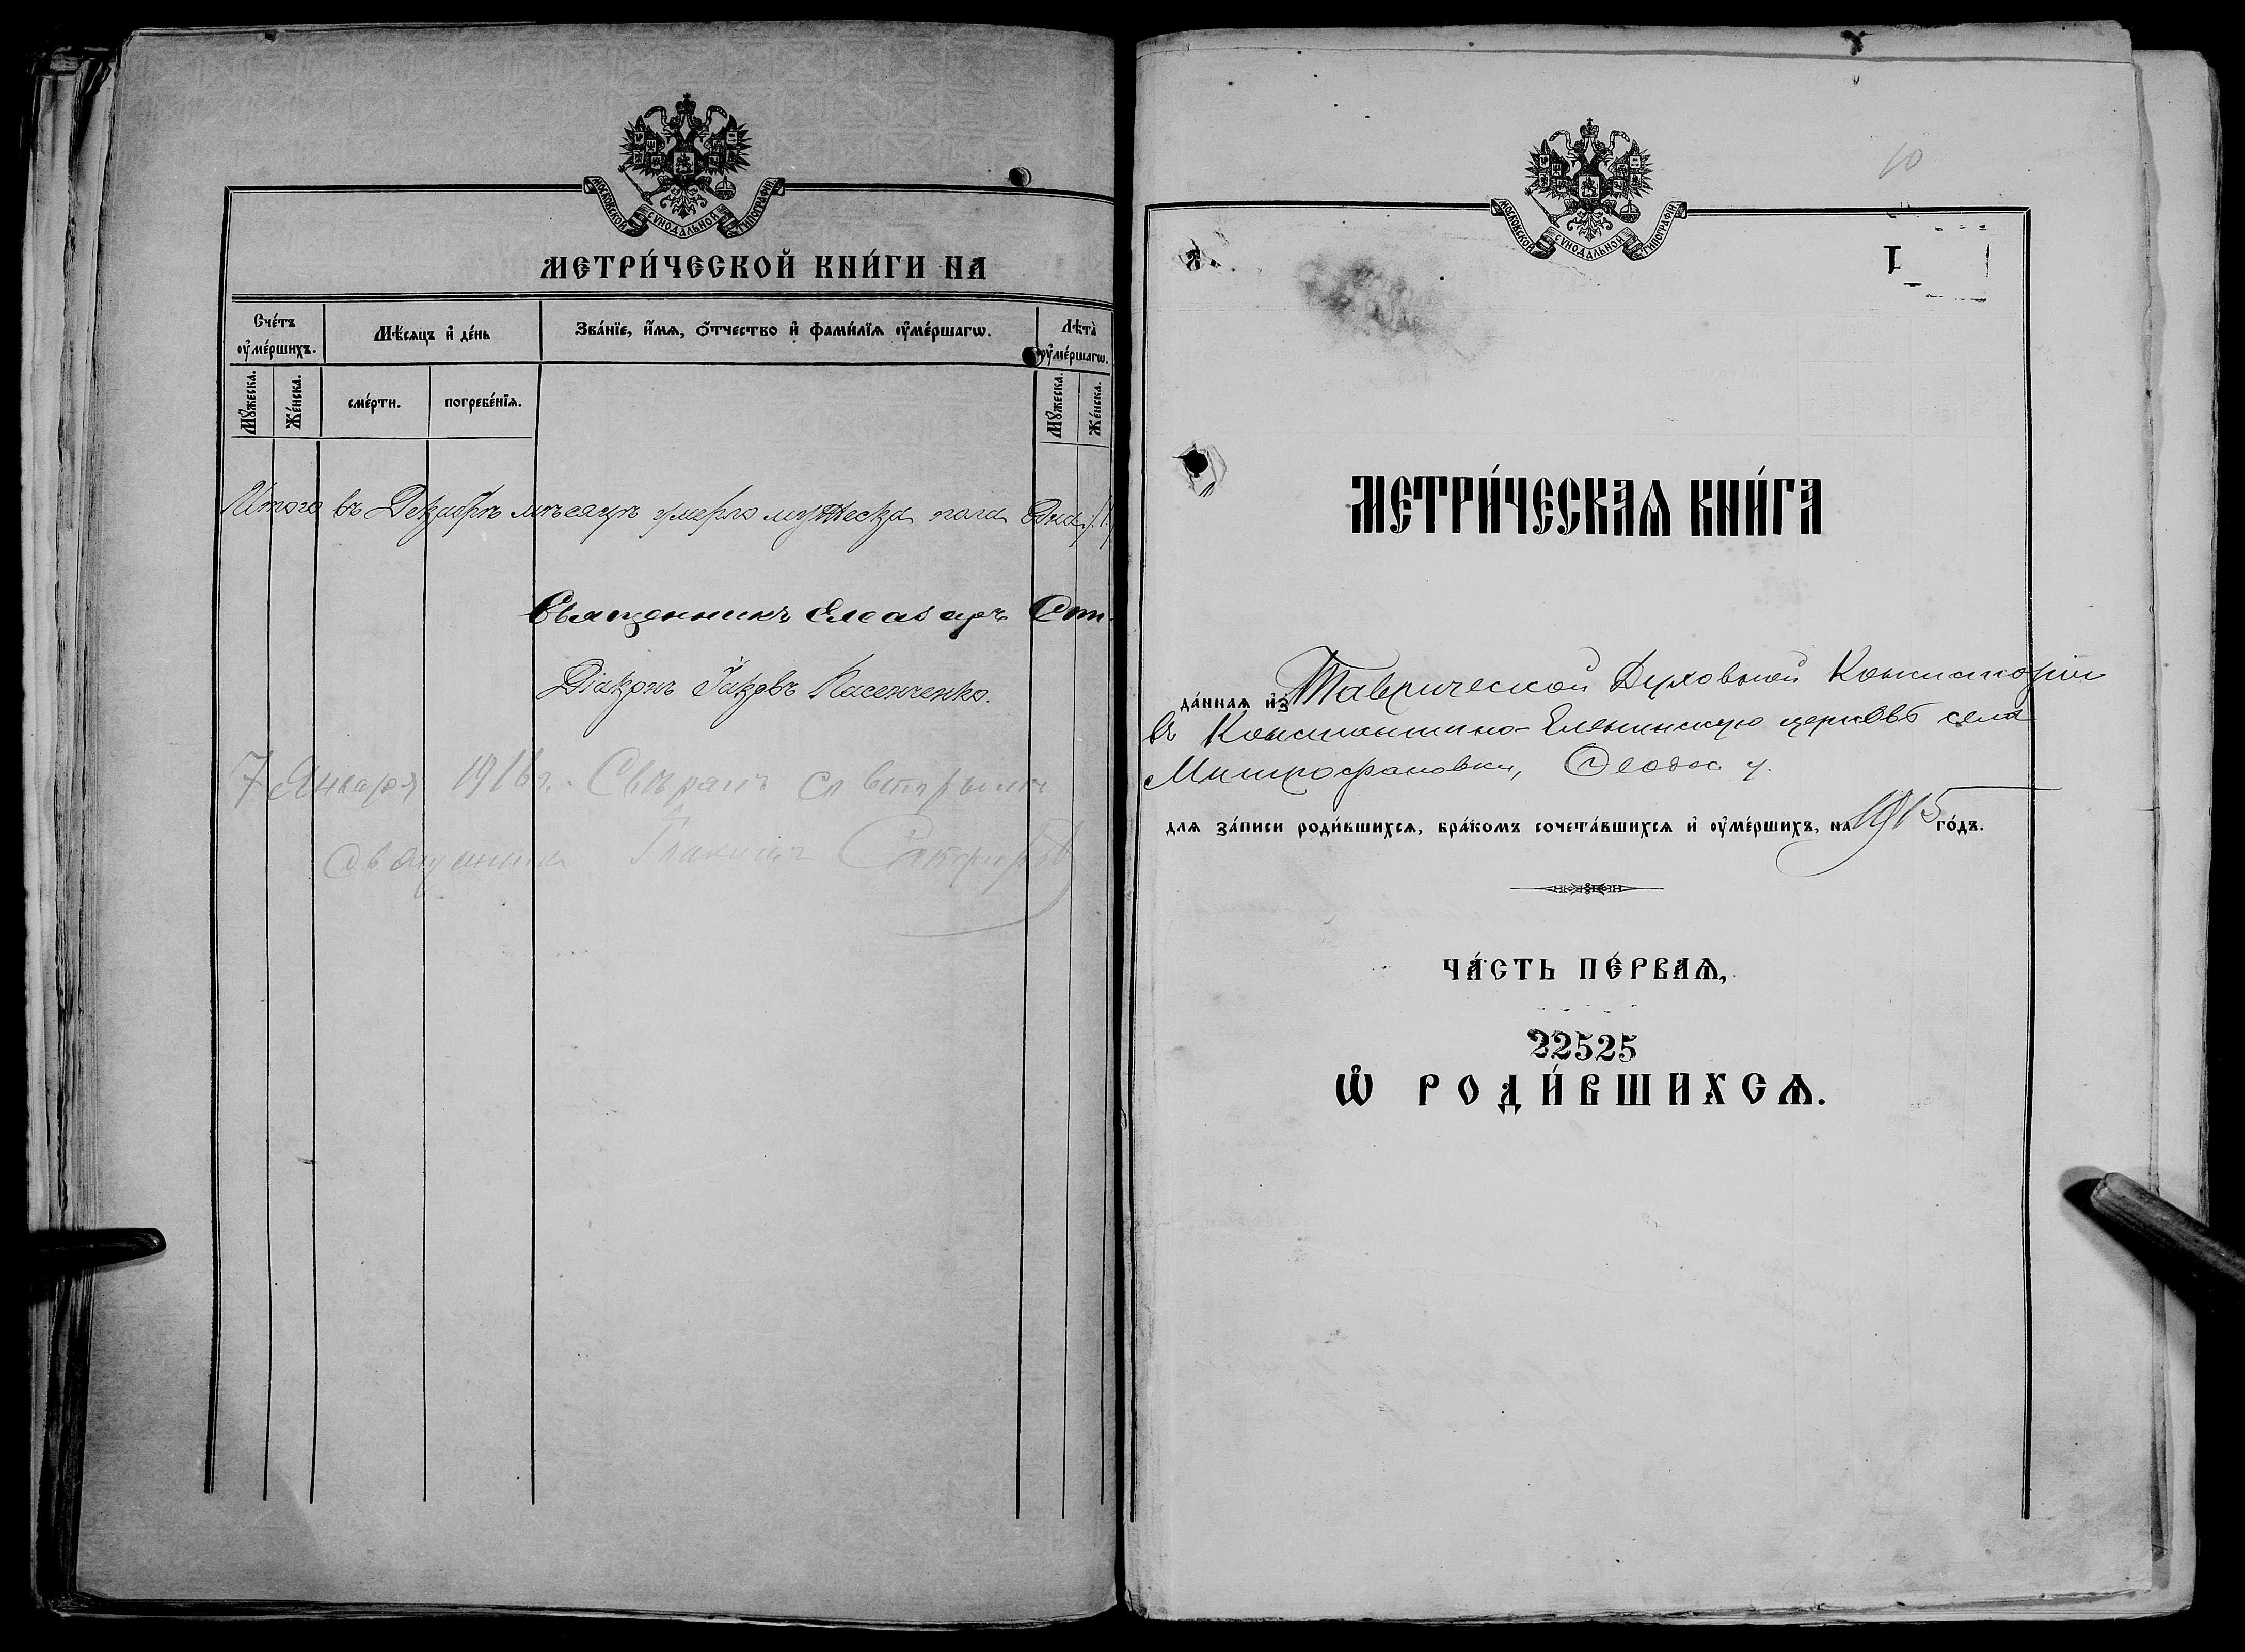 МОСКОВСКОЙ СѴНОДАЛЬНОЙ ТИПОГРАФІИ
МЕТРИ́ЧЕСКОЙ КНИ́ГИ НА
Сче́тъ оу҆ме́ршихъ.
Мѣ́сяцъ и҆ де́нь
Зва́нїе, и҆́мя, ѻ҆́тчество и҆ фами́лїя оу҆ме́ршагѡ.
Лѣта̀ оу҆ме́ршагѡ.
Мꙋ́жеска.
Же́нска.
сме́рти.
погребе́нїя.
Мꙋ́жеска.
Же́нска.
Итого въ Декабрѣ мѣсяцѣ умерло мужеска пола
Священникъ Елеазаръ
Дiаконъ Іаковъ Касенченко.
7 Января 1916 г. Свѣрилъ со вторымъ
МОСКОВСКОЙ СѴНОДАЛЬНОЙ ТИПОГРАФІИ
10
МЕТРИ́ЧЕСКАѦ КНИ́ГА
да́нная и҆з̾ Таврической Духовной Консисторіи
въ Константино-Еленинскую церковь села
Митрофановки, Ѳеодос. у.
для за́писи роди́вшихся, бра́комъ сочета́вшихся и҆ оу҆ме́ршихъ, на 1915 го́дъ.
ЧА́СТЬ ПЕ́РВАѦ,
22525
Ѽ РОДИ́ВШИХСѦ.